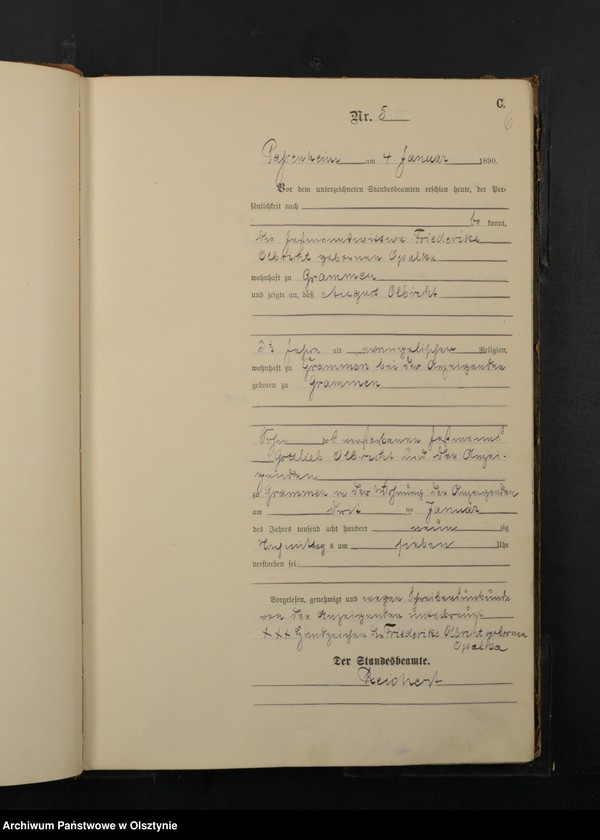 C.
6
Nr. 5
Passenheim am 4. Januar 1890.
Vor dem unterzeichneten Standesbeamten erschien heute, der Per-
sönlichkeit nach
be kannt,
die Friederike
Olbricht geborenen Opalka
wohnhaft zu Grammen
und zeigte an, daß August Olbricht
33 Jahre alt evangelischer Religion,
wohnhaft zu Grammen bei der Anzeigenden
geboren zu Grammen
Sohn verstorbenen
Gottlieb Olbricht und der Anzei-
genden
zu Grammen in der Wohnung der Anzeigenden
am Januar
des Jahrs tausend acht hundert neun zig
Nachmittag s um sieben Uhr
verstorben sei.
Vorgelesen, genehmigt und wegen Schreibensunkunde
von der Anzeigenden unterkreuzt
+++ Handzeichen der Friederike Olbricht geborene
Opalka
Der Standesbeamte.
Reichert
Archiwum Państwowe w Olsztynie